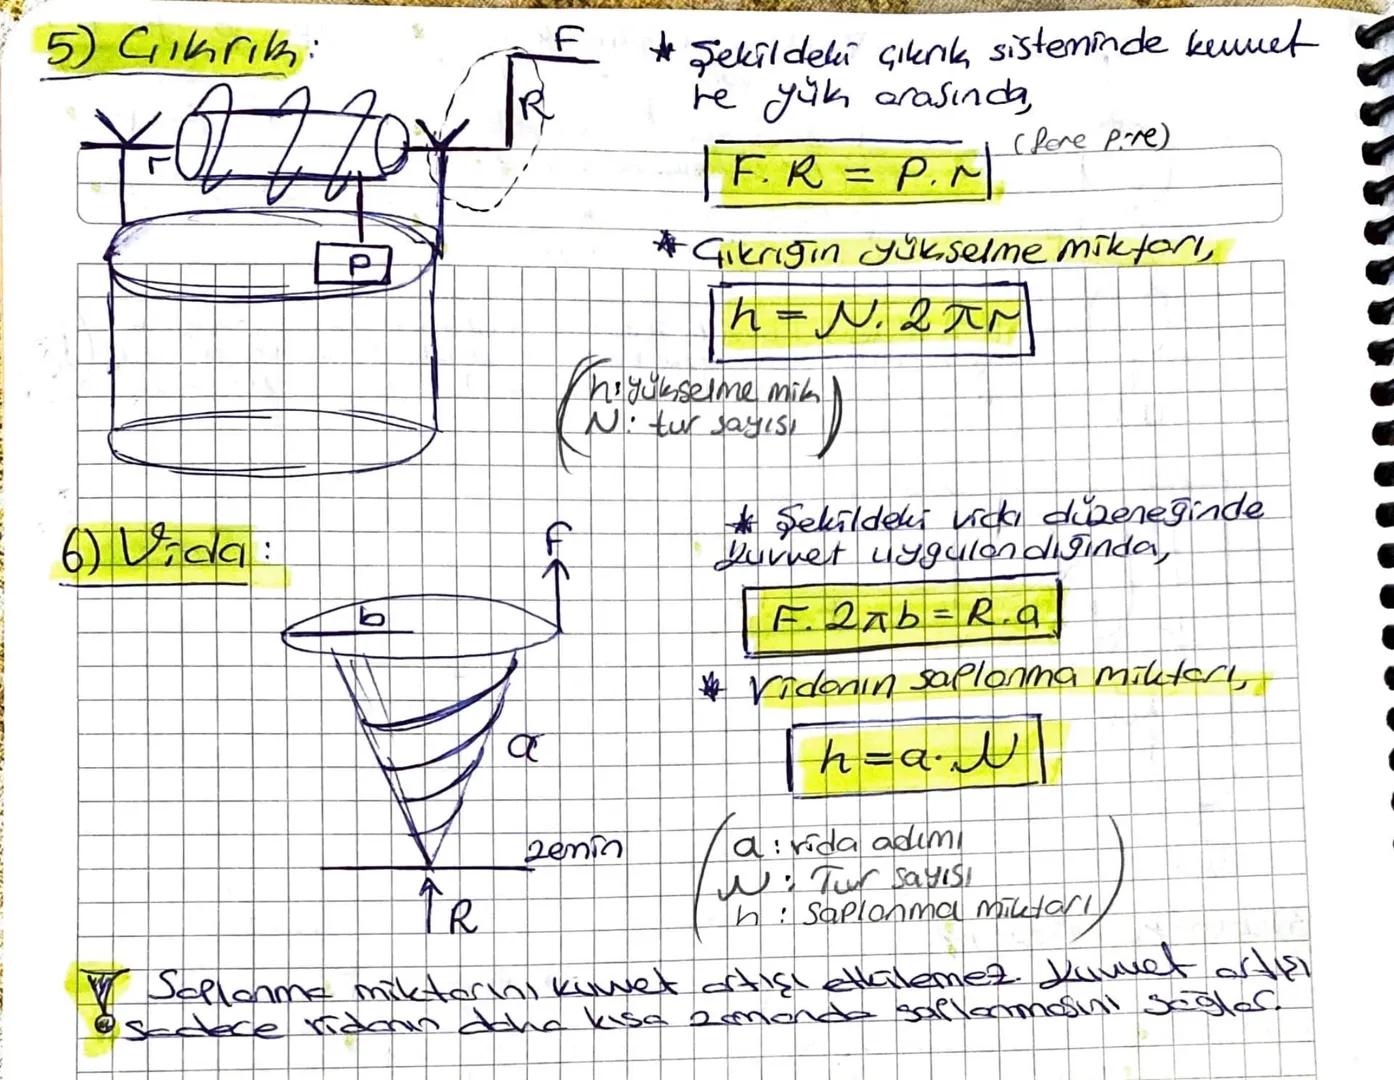 5) Çıkrık:
F
R
r
P
* Şekildeki çıkrık sisteminde kuvvet
ve yük arasında,
F. R = P. r
(fare pire)
* Çıkrığın yükselme miktarı,
h = N. 2πr
h: yükselme mik
N: tur sayısı
6) Vida:
F
b
a
zemin
R
* Şekildeki vida düzeneğinde
kuvvet uygulandığında,
F. 2πb = R.a
* Vidanın saplanma miktarı,
h = a. N
a: vida adımı
N: Tur sayısı
h: saplanma miktarı
! Saplanma miktarını kuvvet artışı etkilemez. Kuvvet artışı
sadece vidanın daha kısa zamanda saplanmasını sağlar.